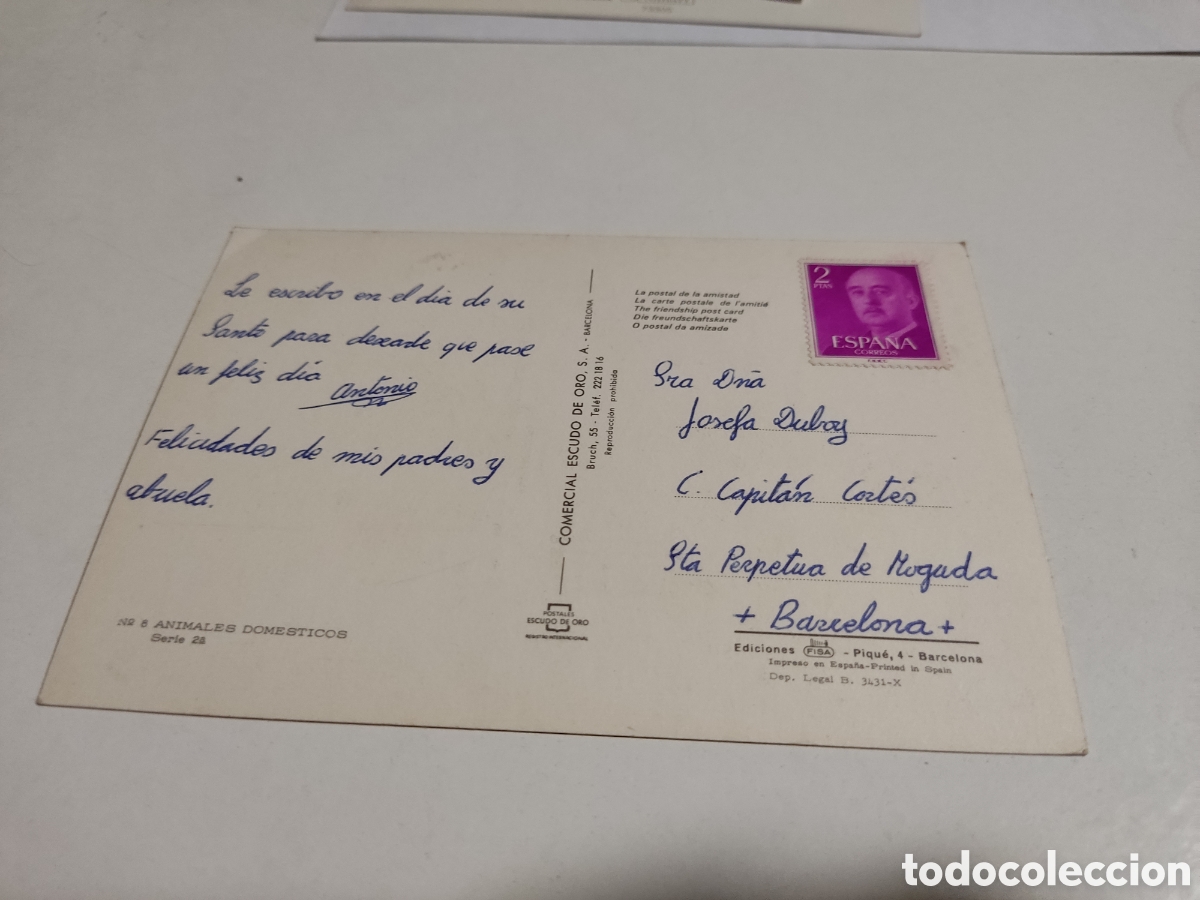 Le escribo en el dia de su
Santo para desearle que pase
un feliz día
Antonio
Felicidades de mis padres y
abuela.
Nº 8 ANIMALES DOMESTICOS
Serie 2ª
COMERCIAL ESCUDO DE ORO, S. A. - BARCELONA
Bruch, 55 - Teléf. 222 18 16
Reproducción prohibida
POSTALES
ESCUDO DE ORO
REGISTRO INTERNACIONAL
La postal de la amistad
La carte postale de l'amitié
The friendship post card
Die freundschaftskarte
O postal da amizade
2
PTAS
ESPAÑA
CORREOS
Sra Dña
Josefa Duboy
C. Capitán Cortés
Sta Perpetua de Moguda
+ Barcelona +
Ediciones FISA - Piqué, 4 - Barcelona
Impreso en España-Printed in Spain
Dep. Legal B. 3431-X
todocoleccion